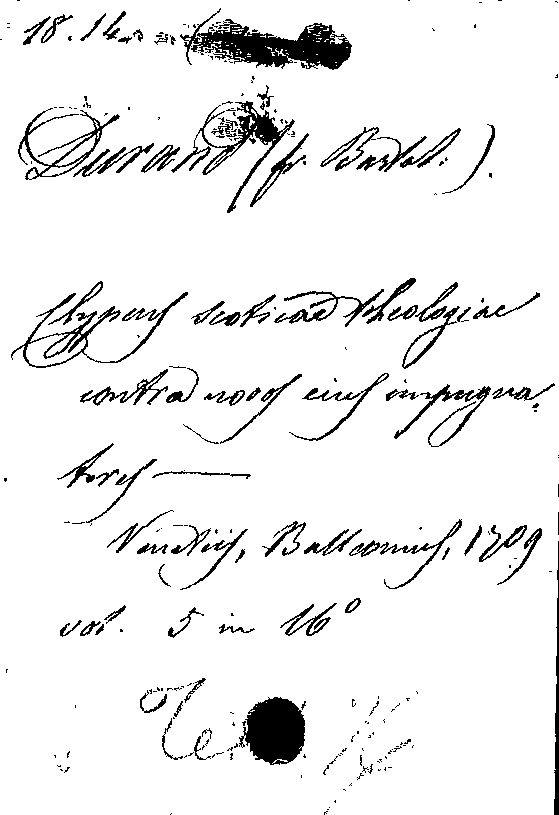 18.14.
Durand (fr. Bartol.).
Clypeus scoticae theologiae
contra novos eius impugna-
tores —
Venetiis, Balleonius, 1709
vol. 5 in 16°